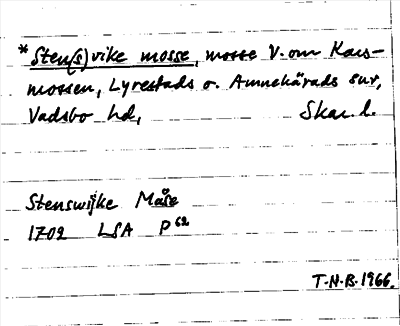 *Sten(s)vike mosse, mosse V. om Kaos-
mossen, Lyrestads o. Amnehärads snr,
Vadsbo hd, Skar. l.
Stenswijke Måse
1702 LSA P 62
T.N.B. 1966.